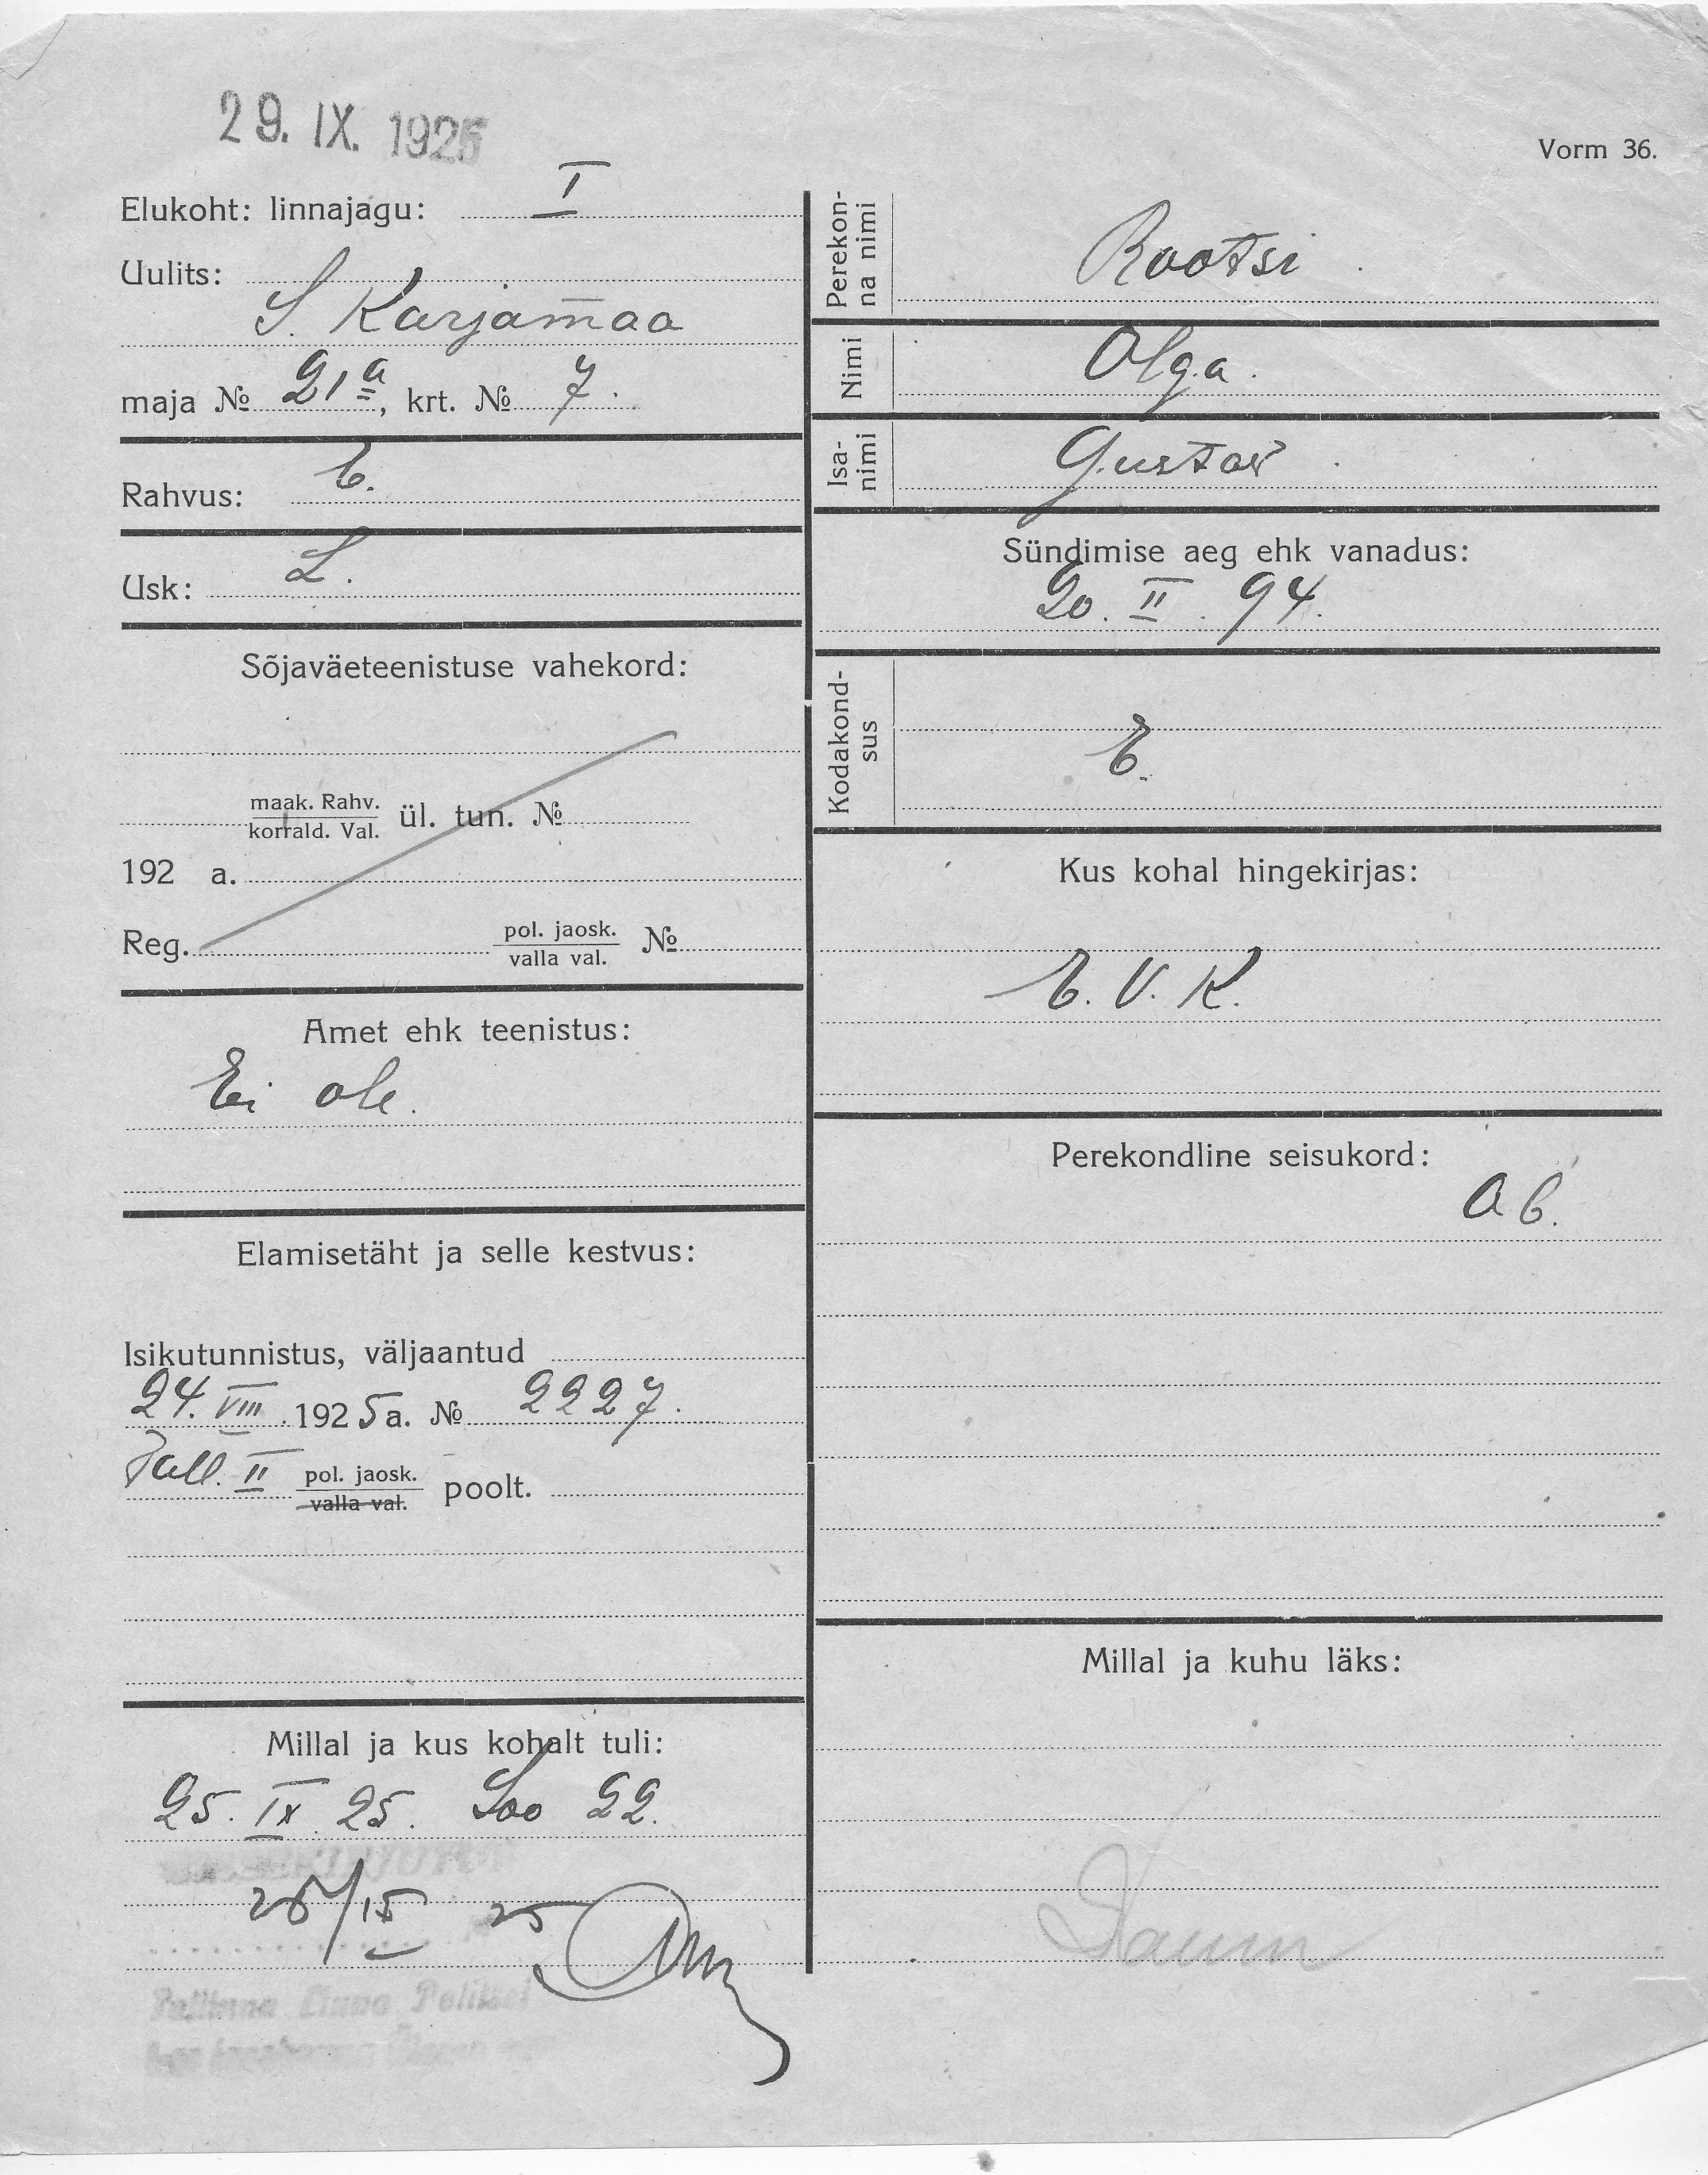 29. IX. 1925
Vorm 36.
Elukoht: linnajagu: I
Uulits:
S. Karjamaa
maja № 21a, krt. № 7.
Rahvus: E.
Usk: L.
Sõjaväeteenistuse vahekord:
maak. Rahv.
korrald. Val. ül. tun. №
192 a.
Reg. pol. jaosk.
valla val. №
Amet ehk teenistus:
Ei ole.
Elamisetäht ja selle kestvus:
Isikutunnistus, väljaantud
24. VIII. 1925 a. № 2227.
Tall. II pol. jaosk.
valla val. poolt.
Millal ja kus kohalt tuli:
25. IX. 25. Soo 22.
25
Tallinna Linna Politsei
Perekon-
na nimi Rootsi
Nimi Olga.
Isa-
nimi Gustav
Sündimise aeg ehk vanadus:
20. II. 94.
Kodakond-
sus E.
Kus kohal hingekirjas:
E. V. K.
Perekondline seisukord:
Ab.
Millal ja kuhu läks: